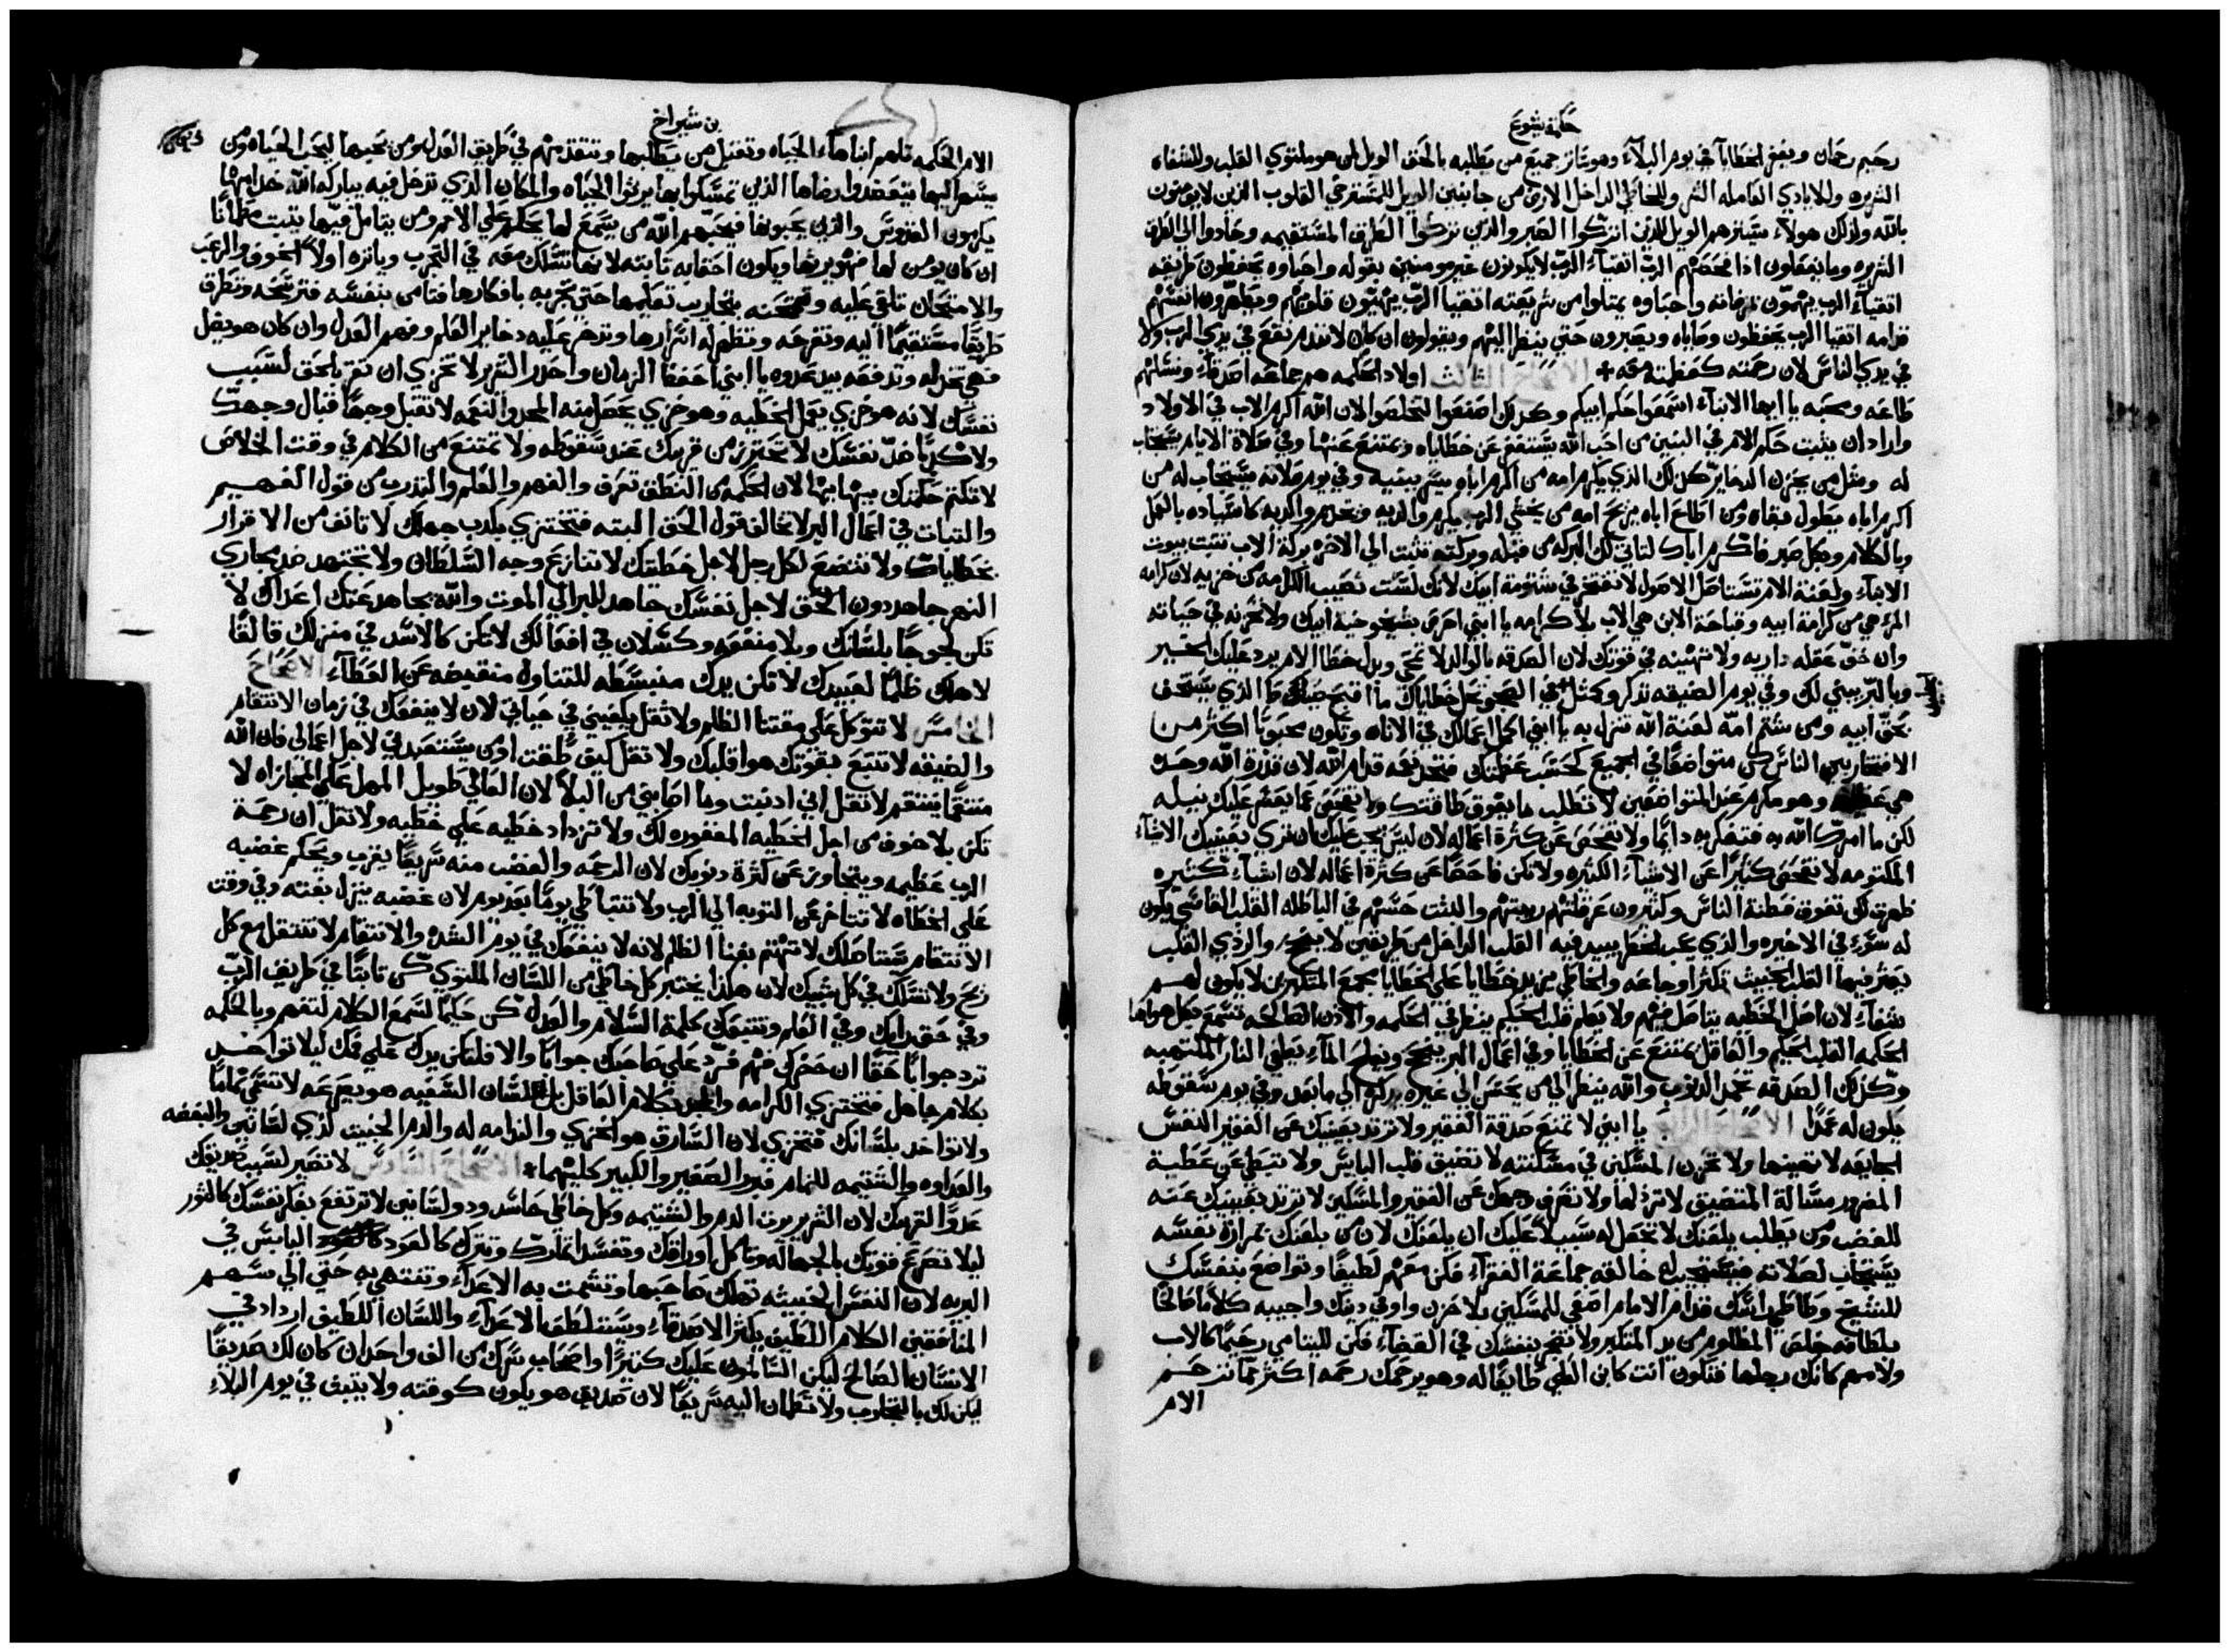 حكمة يشوع
رحيم رحمان ويغفر الخطايا في يوم البلاء وهو ساتر جميع من يطلبه بالحق الويل لمن هو ملتوي القلب وللشفاه
الشريره وللايادي العامله الشر وللخاطي الداخل الارض من جانبين الويل للمسترخي القلوب الذين لا يومنون
بالله ولذلك هولاء يسترهم الويل للذين تركوا الصبر والذين تركوا الطرق المستقيمه وحادوا الي الطرق
الشريره وما يفعلون اذا فحصهم الرب اتقياء الرب لا يكونون غير مومنين بقوله واحباوه يحفظون طريقه
اتقياء الرب يهتمون مرضاته واحباوه يمتلوا من شريعته اتقيا الرب يهيون قلوبهم ويطهرون انفسهم
قدامه اتقيا الرب يحفظون وصاياه ويصبرون حتي ينظر اليهم ويقولون ان كان لا نندم نقع في يدي الرب ولا
في يدي الناس لان رحمته كعظمته معه الاصحاح الثالث اولاد الحكمه هم جماعه اصدقاء ونسلهم
طاعه ومحبه يا ايها الابناء اسمعوا حكم ابيكم وهكذا اصنعوا لتخلصوا لان الله اكرم الاب في الاولاد
واراد ان يثبت حكم الام في البنين من احب الله يستغفر عن خطاياه ويمتنع عنها وفي صلاة الايام يستجاب
له ومثل من يخزن الدخاير كذلك الذي يكرم امه من اكرم اباه يسر ببنيه وفي يوم صلاته يستجاب له من
اكرم اباه يطول بقاه ومن اطاع اباه يريح امه من يخشي الرب يكرم والديه ويخدم والديه كاسياده بالعمل
وبالكلام وبكل صبر فاكرم اباك لتاتي لك البركه من قبله وبركته تثبت الي الاخره بركة الاب تثبت بيوت
الابناء ولعنة الام تستاصل الاصول لا تفتخر في شتومة ابيك لانك لست تصيب الكرامه من خزيه لان كرامه
المرء هي من كرامة ابيه وقباحة الابن هي الاب بلا كرامه يا ابني احرص بشيخوخية ابيك ولا تحزنه في حياته
وان خف عقله داريه ولا تهينه في قوتك لان الصدقه بالوالد لا تمحي وبدل خطا الام يرد عليك الخير
وبالبر يبني لك وفي يوم الضيقه تذكر وكمثل في الصحو تحل خطاياك ما اقبح صيت الذي يستخف
بحق ابيه ومن شتم امه لعنة الله تنزل به يا ابني اكمل اعمالك في الاناه وتكون محبوبا اكثر من
الافتخار بين الناس كن متواضعا في الجميع كحسب عظمتك فتجد نعمه قدام الله لان قدرة الله وحده
هي عظيمه وهو مكرم عند المتواضعين لا تطلب ما يفوق طاقتك ولا تفحص عما يعسر عليك نيله
لكن ما امرك الله به فتفكر به دايما ولا تفحص عن كثرة اعماله لان ليس يجب عليك ان تري بعينيك الاشياء
المكتومه لا تفحص كثيرا عن الاشياء الكثيره ولا تكن فاحصا عن كثرة اعماله لان اشياء كثيره
ظهرت لك تفوق فطنة الناس وكثيرون عرقلتهم ريبتهم والبثت حسهم في الباطله القلب القاسي يكون
له سوء في الاخيره والذي يحب الخطر يبيد فيه القلب الداخل من طريقين لا ينجح والردي القلب
يعثر فيهما القلب الخبيث تكثر اوجاعه والخاطي يزيد خطايا علي الخطايا مجمع المتكبرين لا يكون لهم
شفاء لان اصل الخطيه يتاصل فيهم ولا يعلم قلب الحكيم ينظر في الحكمه والاذن الصالحه تسمع بكل هواها
الحكمه القلب الحكيم والعاقل يمتنع عن الخطايا وفي اعمال البر ينجح وينجح الماء يطفي النار الملتهبه
وكذلك الصدقه تخمد الذنوب والله ينظر الي من يحسن الي غيره يذكره الي ما بعد وفي يوم سقوطه
يكون له عمدا الاصحاح الرابع يا ابني لا تمنع صدقة الفقير ولا ترتد بعينيك عن الفقير النفس
الجايعه لا تهينها ولا تحزن المسكين في مسكنته لا تضيق قلب البايس ولا تبتطي عن عطية
المضرور مسالة المتضيق لا ترذلها ولا تصرف وجهك عن الفقير والمسكين لا ترتد بعينيك عنه
للغضب ومن يطلب يلعنك لا تجعل له سبيلا عليك ان يلعنك لان من يلعنك بمرارة نفسه
يستجاب لصلاته فيستجيب له خالقه جماعة الفقراء فكن معهم لطيفا وتواضع بنفسك
للشيخ وطاطي راسك قدام الامام اصغي للمسكين بلا حزن واوفي دينك واجيبه كلاما صالحا
بلطافه خلص المظلوم من يد المتكبر ولا تضجر بنفسك في القضاء فكن لليتامي رحيما كالاب
ولامهم كانك رجلها فتكون انت كابن العلي طايعا له وهو يرحمك رحمه اكثر مما ترحم
الام
بن شيراخ
الام الحكمه تلهم ابناها الحياه وتقبل من يطلبها وتتقدمهم في طريق العدل ومن يحبها يحب الحياه ومن
يسهر اليها يتعضدوا رضاها الذين تمسكوا بها يرثوا الحياه والمكان الذي تدخل فيه يباركه الله خدامها
يكرمون القدوس والذين يحبونها فيحبهم الله من يستمع لها يحكم علي الامم ومن يتامل فيها يثبت مطمانا
ان كان يومن لها فهو يرثها ويكون اعقابه ثابته لانها تسلك معه في التجرب ويازه اولا الخوف والرعب
والامتحان تلقي عليه وتمتحنه بتجارب تعليمها حتي تجربه بافكارها فتامن بنفسه فتريحه وتطرق
طريقا مستقيما اليه وتفرحه وتظهر له اسرارها وتدخر عليه دخاير العلم وفهم العدل وان كان هو يضل
فهي تخذله وتدفعه بيد عدوه يا ابني احفظ الزمان واحذر الشر لا تخزي ان تقر بالحق لسبب
نفسك لانه هو خزي يعمل الخطيه وهو خزي يحصل منه المجد والنعمه لا تقبل وجها قبال وجهك
ولا كذبا ضد نفسك لا تحترز من قريبك عند سقوطه ولا تمتنع من الكلام في وقت الخلاص
لا تكتم حكمتك ببهايها لان الحكمه من النطق تعرف والفهم والعلم والتدرب من قول الفهيم
والثبات في اعمال البر لا تخالف قول الحق البته فتختزي بكذب جهلك لا تانف من الاقرار
بخطاياك ولا تخضع لكل رجل لاجل خطيتك لا تنازع وجه السلطان ولا تجتهد ضد مجاري
النهر جاهد دون الحق لاجل نفسك جاهد للبر الي الموت والله يجاهد عنك اعداك لا
تكن لجوجا بلسانك وبلا منفعه وكسلان في افعالك لا تكن كالاسد في منزلك قالقا
لاهلك ظلما لعبيدك لا تكن يدك منبسطه للتناول منقبضه عن العطاء الاصحاح
الخامس لا تتوكل علي مقتنا الظلم ولا تقل يكفيني في حياتي لان لا ينفعك في زمان الانتقام
والضيقه لا تتبع بقوتك هوا قلبك ولا تقل كيف طقت او من يستعبدني لاجل اعمالي فان الله
منتقما ينتقم لا تقل اني اذنبت وما اصابني من البلا لان العالي طويل المهل علي المجازاه لا
تكن بلا خوف من اجل الخطيه المغفوره لك ولا تزداد خطيه علي خطيه ولا تقل ان رحمة
الرب عظيمه ويتجاوز عن كثرة ذنوبك لان الرحمه والغضب منه سريعا يقرب ويحكم غضبه
علي الخطاه لا تتاخر عن التوبه الي الرب ولا تتباطي يوما بعد يوم لان غضبه ينزل بغته وفي وقت
الانتقام يستاصلك لا تهتم بغنا الظلم لانه لا ينفعك في يوم الشده والانتقام لا تنتقل مع كل
ريح ولا تسلك في كل سبيل لان هكذا يختبر كل خاطي من اللسان الملتوي كن ثابتا في طريق الرب
وفي حق رايك وفي العلم وتتبعك كلمة السلام والعدل كن حكيما لتسمع الكلام لتفهم وبالحكمه
ترد جوابا حقا ان حضرك فهم فرد علي صاحبك جوابا والا فلتكن يدك علي فمك ليلا تواخذ
بكلام جاهل فتختزي الكرامه والمجد بكلام العاقل بل اللسان السفيه هو يصرعه لا تسمي نماما
ولا تواخذ بلسانك فتخزي لان السارق هو الخزي والندامه له والذم الخبيث لذي لسانين والبغضه
والعداوه والشتيمه للنمام فبرر الصغير والكبير كليهما الاصحاح السادس لا تصير لسبب صديقك
عدوا لقريبك لان الشرير يرث الذم والشتيمه وكل خاطي حاسد وذو لسانين لا ترتفع بفكر نفسك كالثور
ليلا تصرع قوتك بالجهاله وتاكل اوراقك وتفسد اثمارك وتترك كالعود اليابس في
البريه لان النفس الخبيثه تهلك صاحبها وتشمت به الاعداء وتنتهي به حتي الي سهم
المنافقين الكلام اللطيف يكثر الاصدقاء ويستلطف الاعداء واللسان اللطيف ازداد في
الانسان الصالح ليكن السالمون عليك كثيرا واصحاب سرك من الف واحد ان كان لك صديقا
ليكن لك بالتجارب ولا تطمان اليه سريعا لان صديق هو يكون كوقته ولا يثبت في يوم البلاء